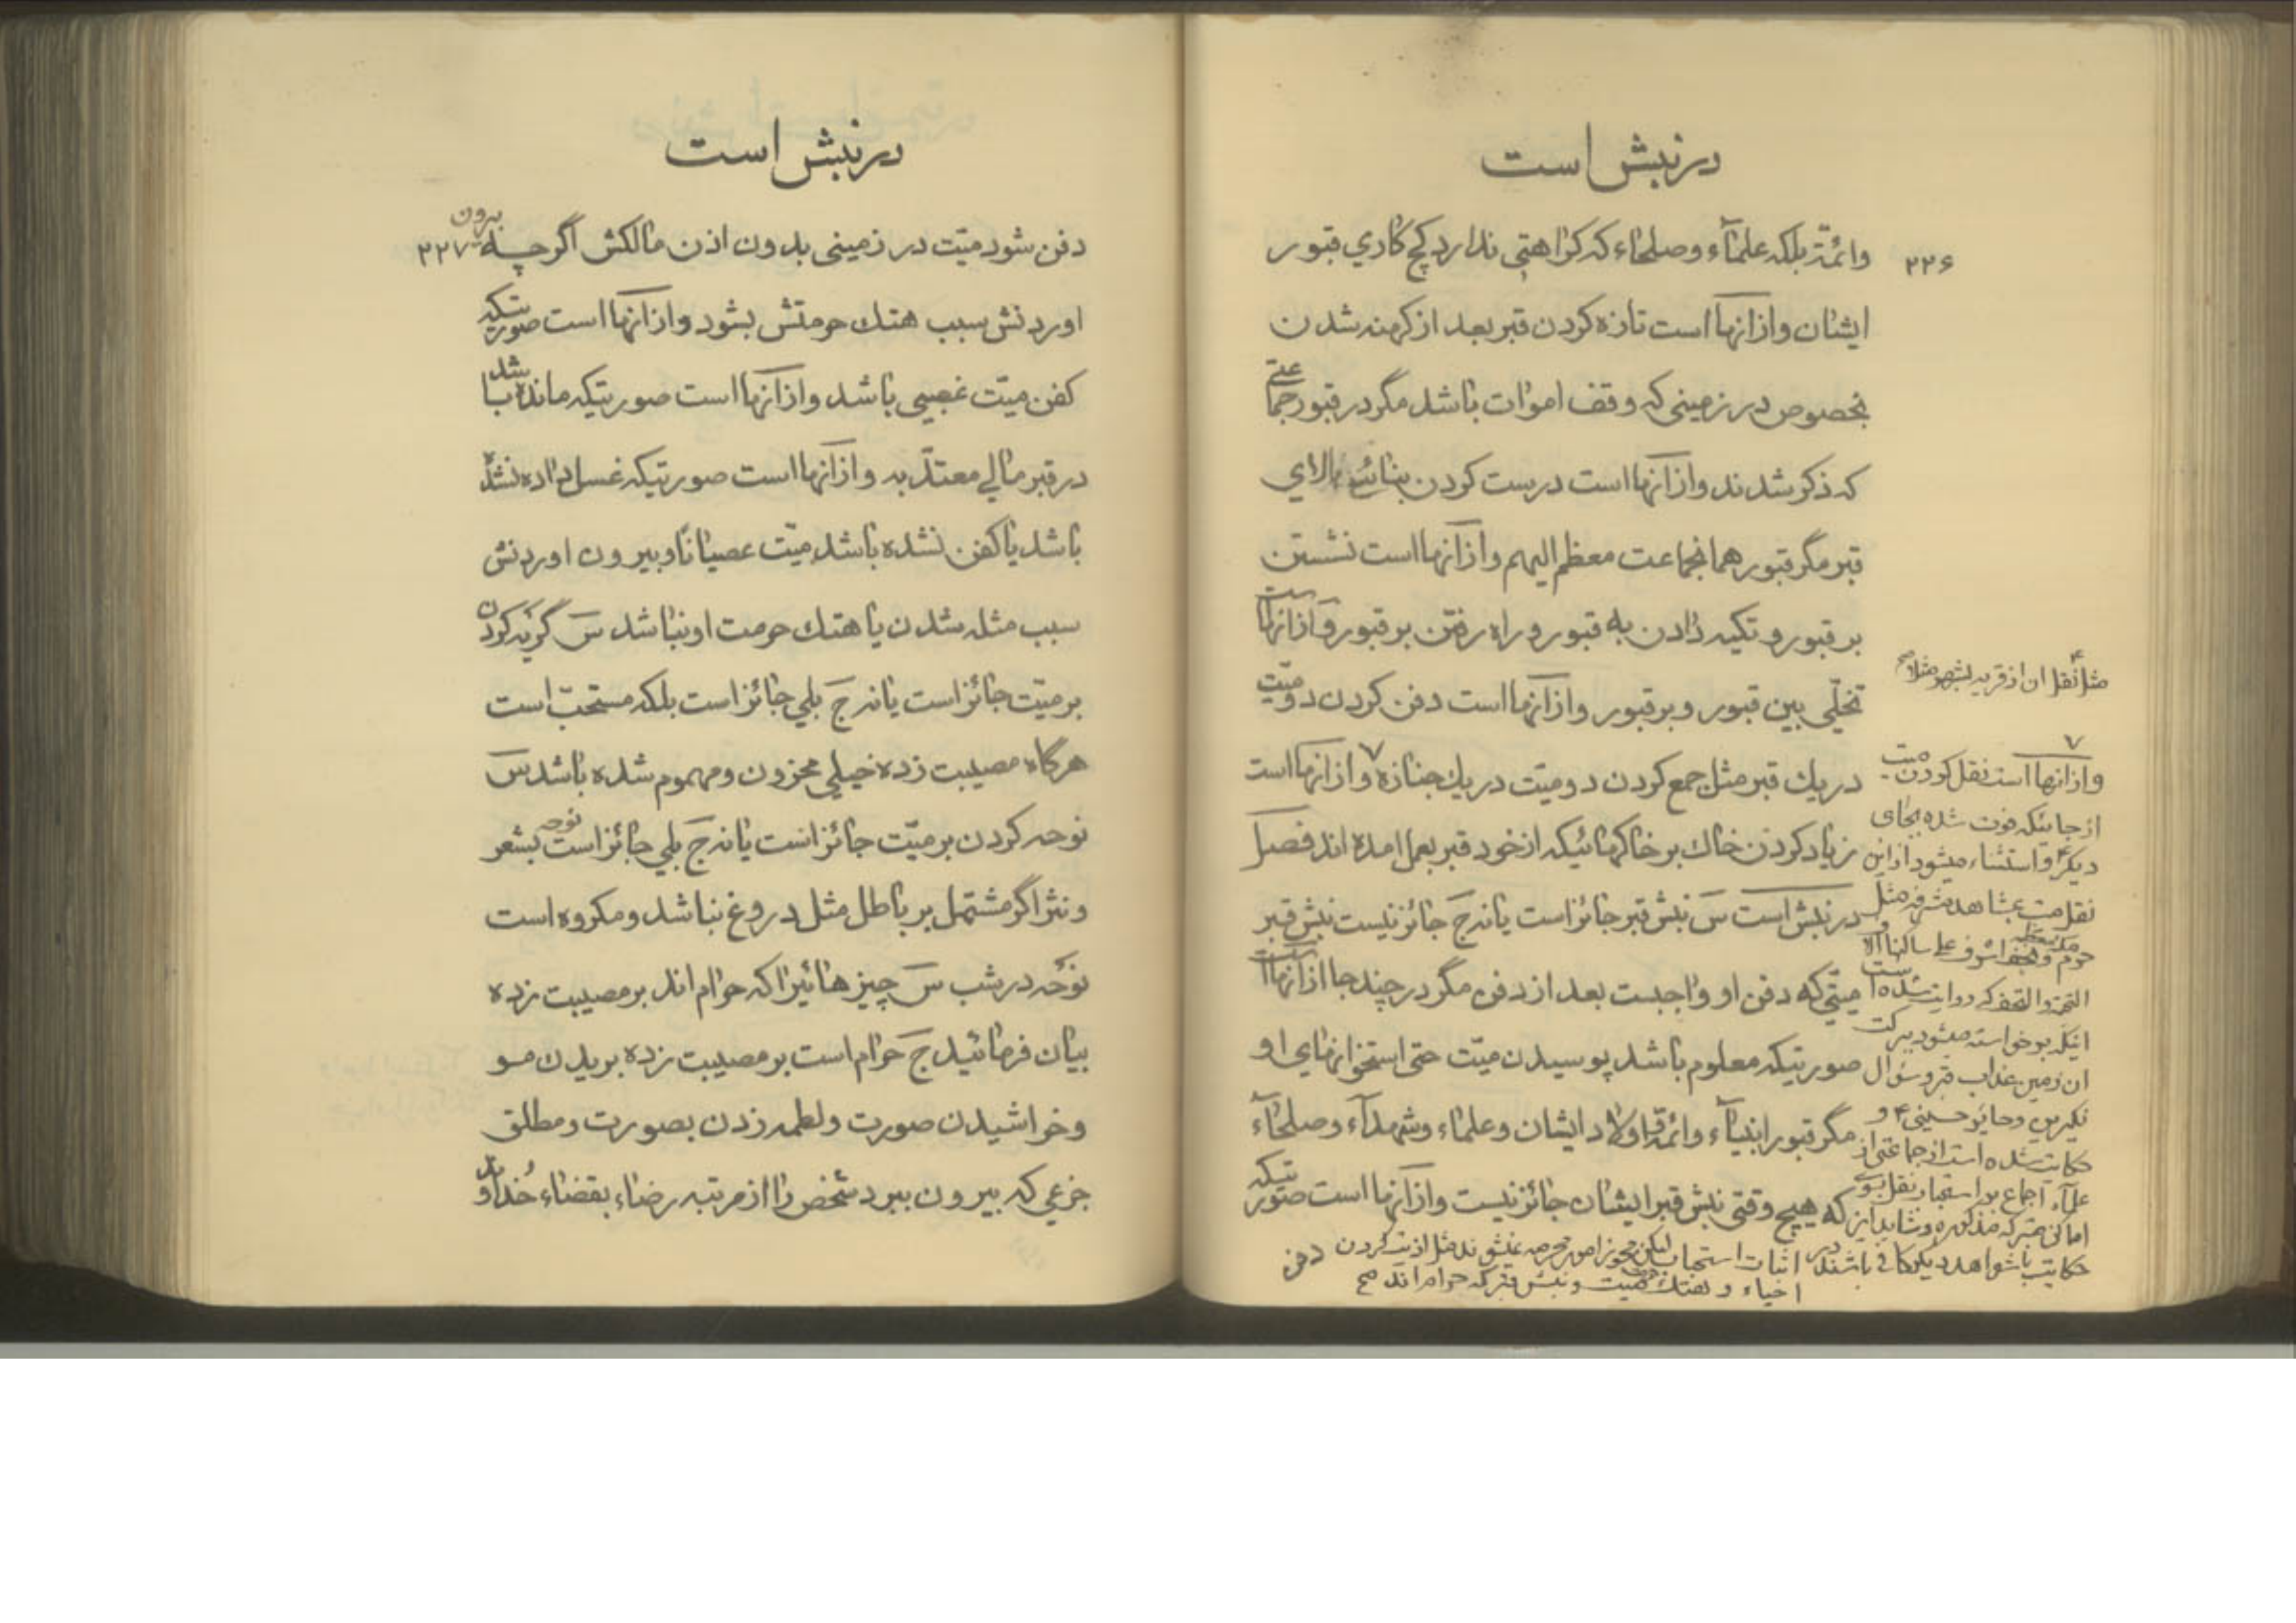 در نبش است
۲۲۶
وائمّة بلکه علمآء وصلحاء که کراهتی ندارد کچ کاري قبور
ایشان وازآنها است تازه کردن قبر بعد از کهنه شدن
بخصوص در زمینی که وقف اموات باشد مگر در قبور جماعتے
که ذکر شدند وازآنها است درست کردن بنائے بالاي
قبر مگر قبور همانجماعت معظم الیهم وازآنها است نشستن
بر قبور و تکیه دادن به قبور و راه رفتن بر قبور وازآنها است
تخلّي بین قبور وبر قبور وازآنها است دفن کردن دو میّت
در یك قبر مثل جمع کردن دو میّت در یك جنازه ۷ وازآنها است
زیاد کردن خاك بر خاکهائیکه از خود قبر بعمل امده اند فصل
در نبش است سَ نبش قبر جائز است یا نه جَ جائز نیست نبش قبر
میّتي که دفن او واجبست بعد از دفن مگر در چند جا ازآنها است
صورتیکه معلوم باشد پوسیدن میّت حتی استخوانهاي او
مگر قبور انبیآء وائمّة واولاد ایشان وعلماء وشهدآء وصلحآء
که هیچ وقتی نبش قبر ایشان جائز نیست وازآنها است صورتیکه
دفن
مثل نقل ان از قریه بشهر مثلا صح
۷
وازانها است نقل کردن میت
از جائیکه فوت شده بجای
دیگر واستثناء میشود ازاین
نقل میت بمشاهد مشرفه مثل
حرم مکه معظمه ونجف اشرف علی ساکنها الاف
التحیة والتحف که روایت شده است
اینکه برخواسته میشود ببرکت
ان زمین عذاب قبر وسؤال
نکیرین وحایر حسینی ۴ و
حکایت شده است از جماعتی از
علمآء اجماع بر استحباب نقل بسوے
اماکن متبرکه مذکوره وشاید این
حکایت با شواهد دیگر کافی باشند در اثبات استحباب لیکن مجوز امور محرمه نمیشوند مثل اذیت کردن
احیاء و هتك حرمت میت و نبش قبر که حرام اند صح
در نبش است
۲۲۷
دفن شود میّت در زمینی بدون اذن مالکش اگر چه بیرون
اوردنش سبب هتك حرمتش بشود وازآنها است صورتیکه
کفن میّت غصبی باشد وازآنها است صورتیکه مانده باشد
در قبر مالي معتدّ به وازآنها است صورتیکه غسل داده نشده
باشد یا کفن نشده باشد میّت عصیانًا وبیرون اوردنش
سبب مثله شدن یا هتك حرمت او نباشد سَ گریه کردن
بر میّت جائز است یا نه جَ بلي جائز است بلکه مستحبّ است
هرگاه مصیبت زده خیلي محزون ومهموم شده باشد سَ
نوحه کردن بر میّت جائز است یا نه جَ بلي جائز است نوحه بشعر
ونثر اگر مشتمل بر باطل مثل دروغ نباشد ومکروه است
نوحه در شب سَ چیز هائیرا که حرام اند بر مصیبت زده
بیان فرمائید جَ حرام است بر مصیبت زده بریدن مو
وخراشیدن صورت ولطمه زدن بصورت ومطلق
جزعي که بیرون ببرد شخص را از مرتبه رضاء بقضاء خداوند